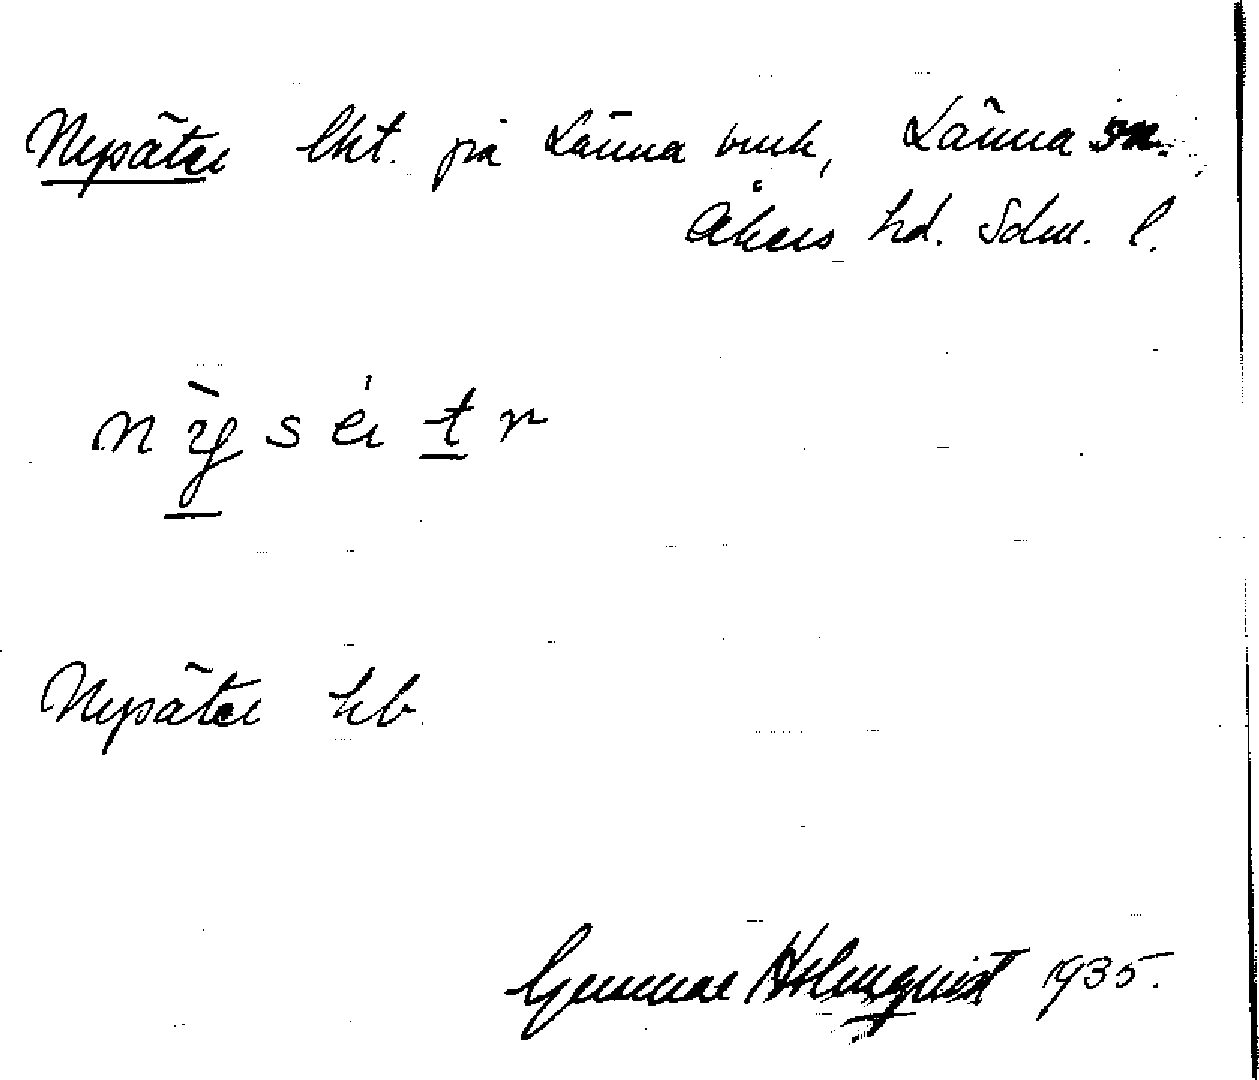 Nysätter lht. på Länna bruk, Länna sn.
Åkers hd. Sdm. l.
nỳsètr
Nysätter hb
Gunnar Holmquist 1935.